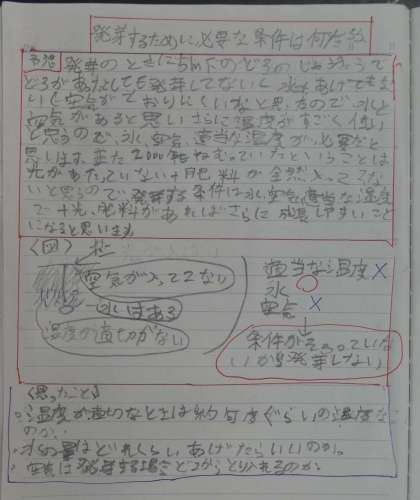 発芽するために必要な条件は何だろう
予想 発芽のときに5m下のどろのじょうきょうで
どろがあったとしても発芽してないし水もあげてもな
いし空気がとおりにくいかなと思ったので水と
空気があると思いさらに温度がすごく低い
と思うので、水、空気、適当な温度が必要だと
思います。また2000年ねむっていたということは
光があたっていない+肥料が全然入ってな
いと思うので発芽する条件は水、空気、適当な温度
で+光、肥料があればさらに成長しやすいこと
になると思います
〈図〉
空気が入ってこない
水はある
温度が適切がない
適当な温度×
水○
空気×
条件がそろっていな
いから発芽しない
〈思ったこと〉
・温度が適切なときは約何度ぐらいの温度な
のか。
・水の量はどれくらいあげたらいいのか。
・空気は発芽するときどこからとり入れるのか。